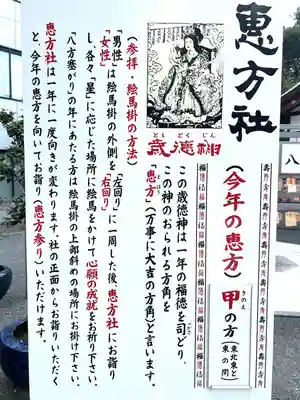 恵方社
歳德神
としとくじん
(今年の恵方)
甲の方(東北東と東の間)
きのえ
この歳徳神は一年の福徳を司どり、
この神のおられる方角を
恵方(万事に大吉の方角)と言います。
えほう
(参拝・絵馬掛の方法)
「男性」は絵馬掛の外側を「左回り」
「女性」「右回り」に一周した後、恵方社にお詣り
し、各々「星」に応じた場所に絵馬をかけて心願の成就をお祈り下さい。
「八方塞がり」の年にあたる方は絵馬掛の上部斜めの場所にお掛け下さい。
恵方社は一年に一度向きが変わります。社の正面からお詣りいただく
と、今年の恵方を向いてお詣り(恵方参り)いただけます。
八